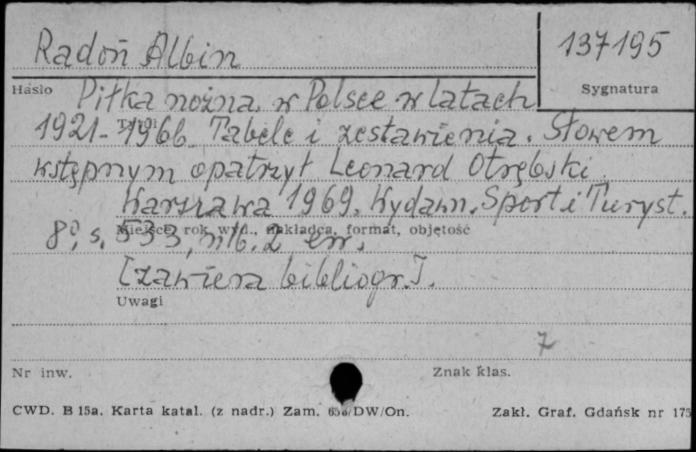 Radoń Albin
137195
Hasło
Sygnatura
Piłka nożna w Polsce w latach
Tytuł
1921-1966. Tabele i zestawienia. Słowem
wstępnym opatrzył Leonard Otrębski.
Warszawa 1969. Wydawn. Sport i Turyst.
Miejsce, rok wyd., nakładca, format, objętość
8°, s. 533, nlb. 2 err.
[zawiera bibliogr.].
Uwagi
7
Nr inw.
Znak klas.
CWD. B 15a. Karta katal. (z nadr.) Zam. /DW/On.
Zakł. Graf. Gdańsk nr 175